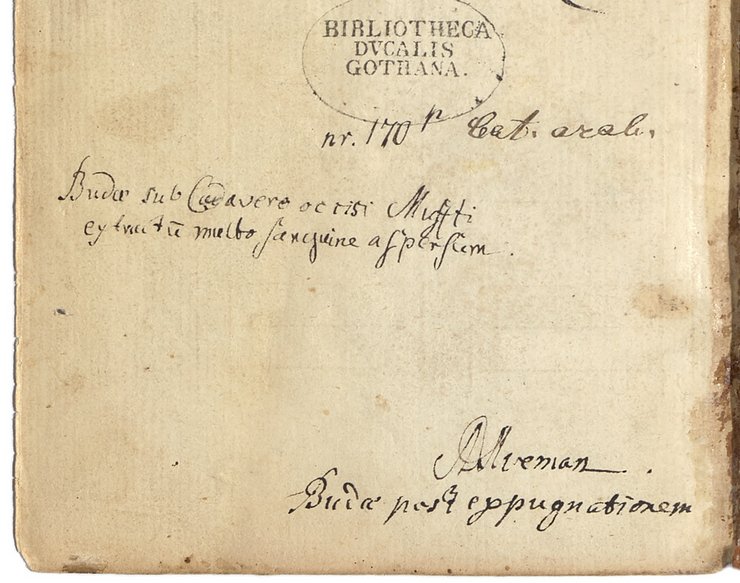 BIBLIOTHECA
DVCALIS
GOTHANA.
nr. 170 Cat. arab.
Budæ sub Cadavere occisi Muffti
extractũ multo sanguine aspersum.
Budæ post expugnationem